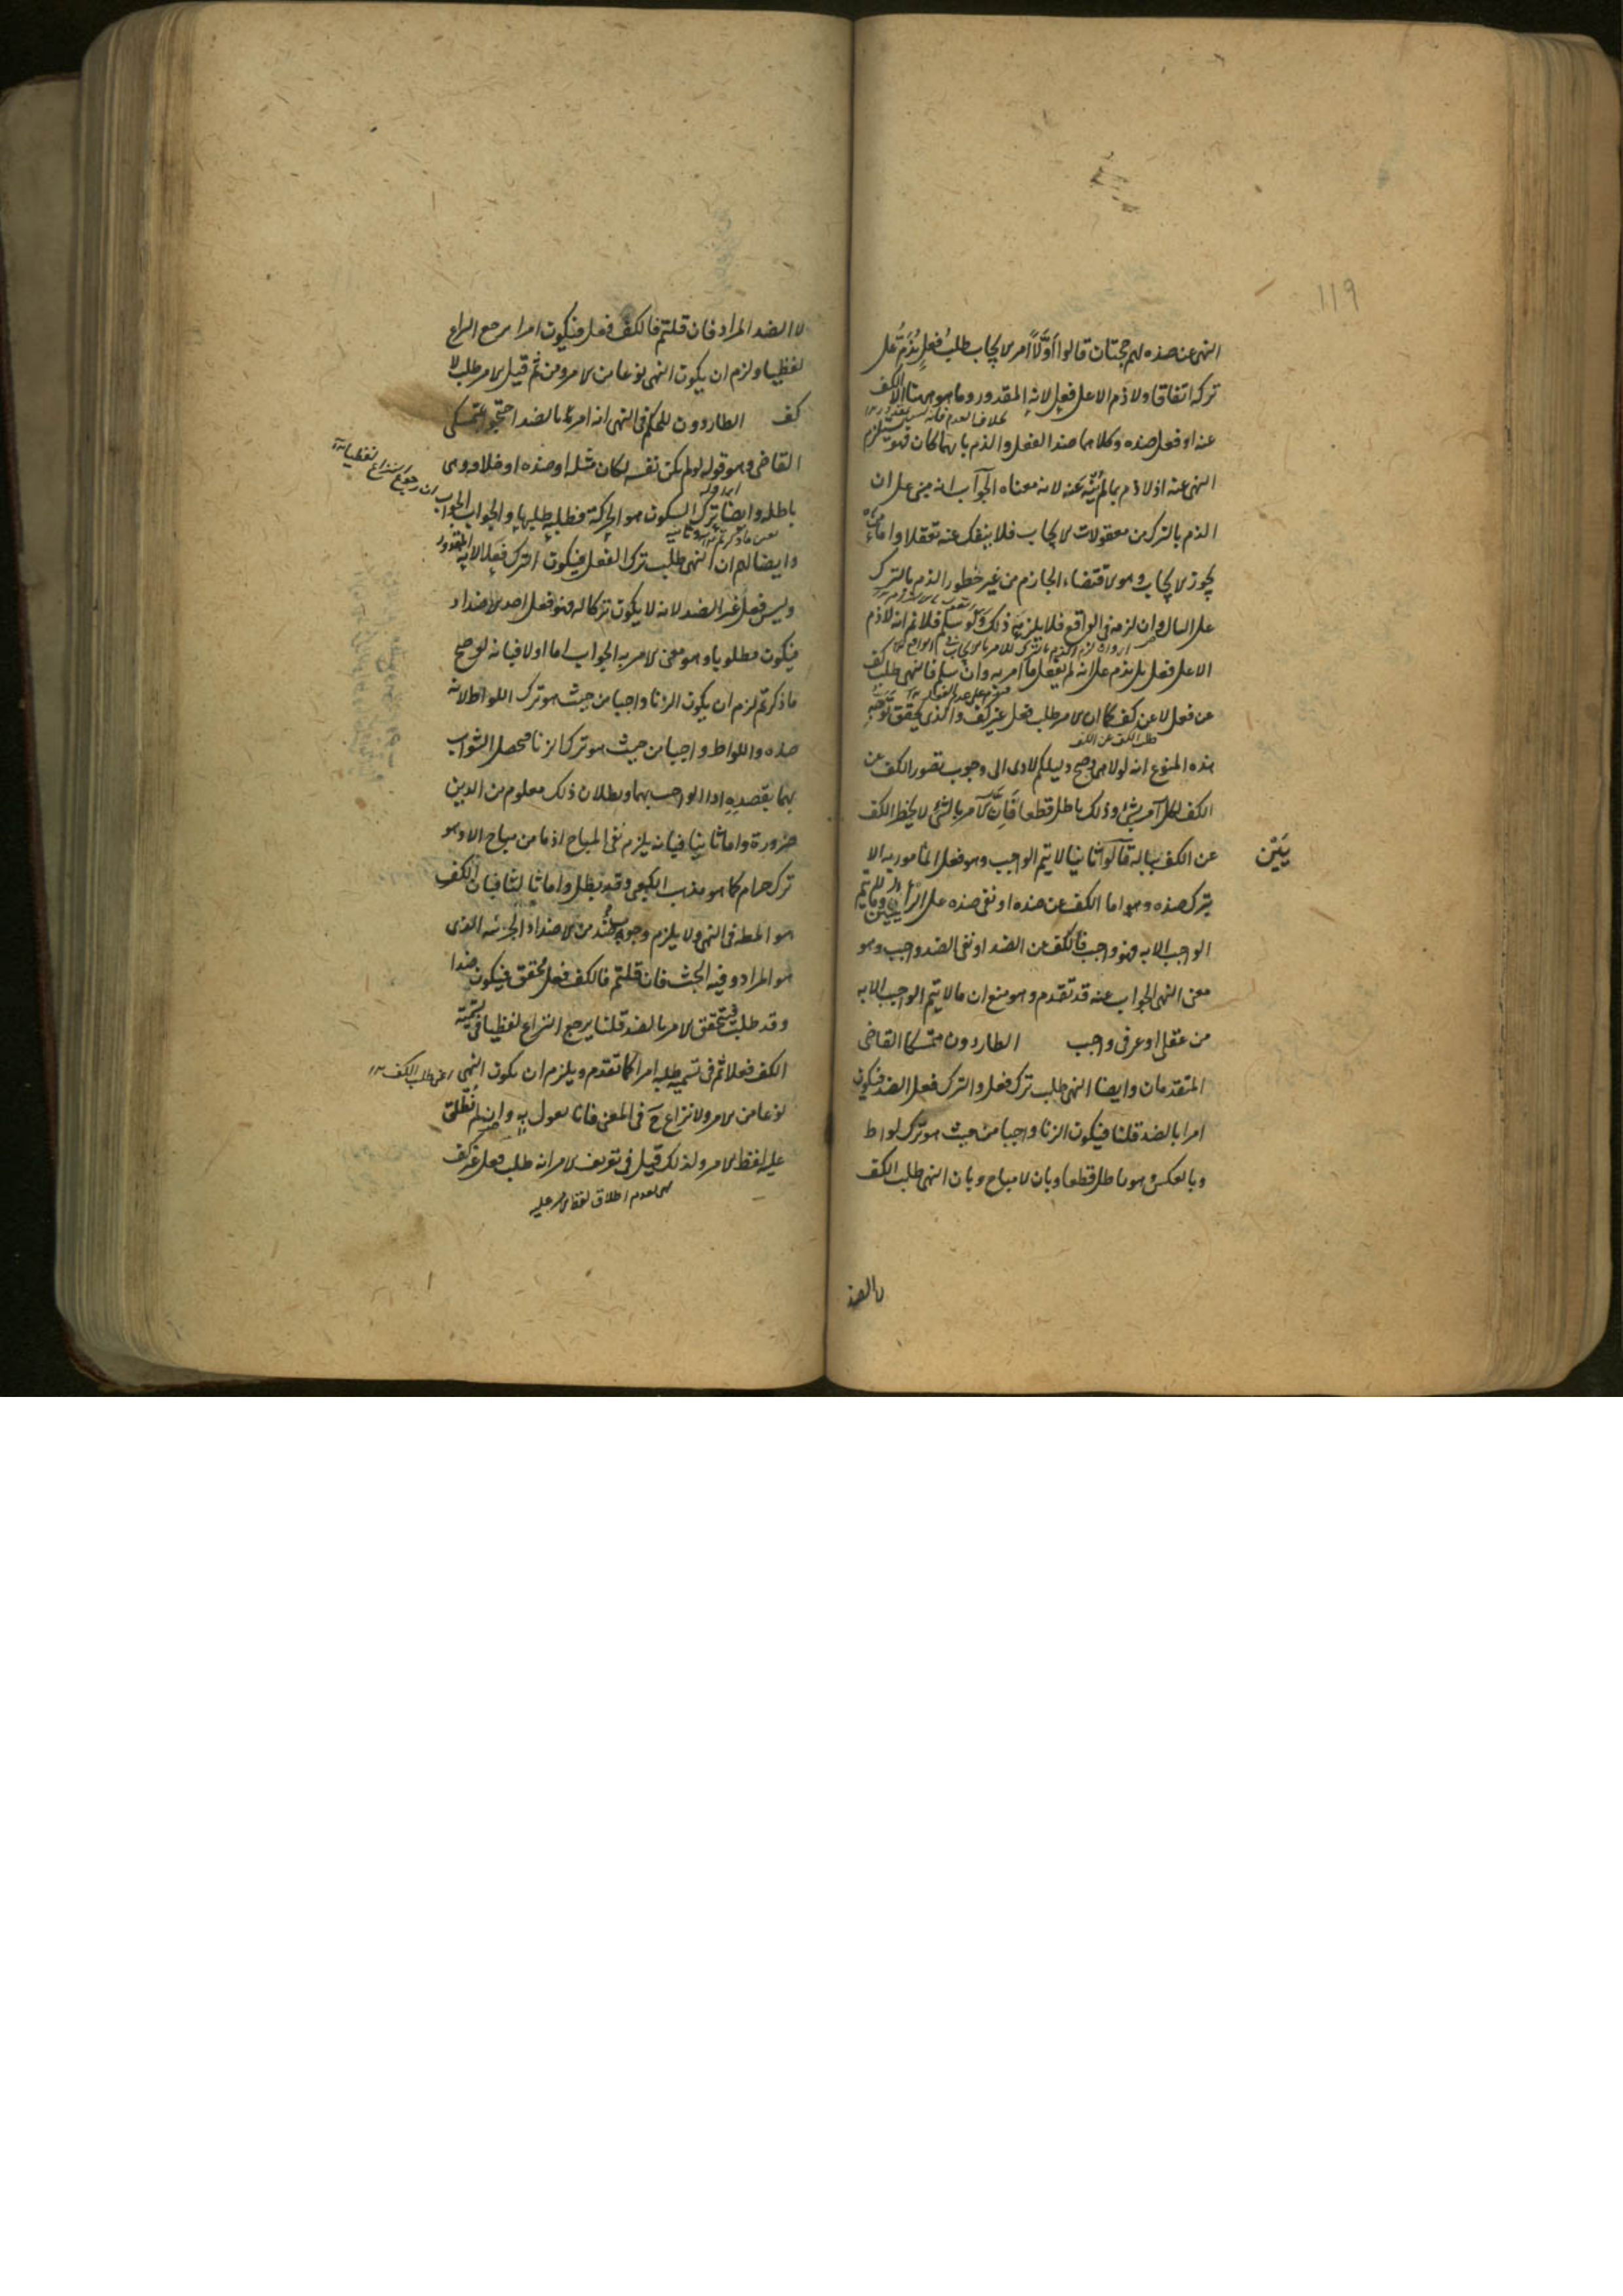 119
النهى عن ضده لهم حجتان قالوا أوّلاً امر الايجاب طلبُ فعلٍ يُذَمّ على
تركه اتفاقا ولا ذم الا على فعل لانه المقدور وما هو هنا الا الكف
عنه او فعل ضده وكلاهما ضد الفعل والذم بايهما كان فهو يستلزم
النهى عنه اذ لا ذم بما لم يُنْهَ عنه لانه معناه الجوآب انه مبنى على ان
الذم بالترك من معقولات الايجاب فلا ينفك عنه تعقلا واما
يجوز الايجاب وهو الاقتضاء الجازم من غير خطور الذم بالترك
على البال وان لزمه فى الواقع فلا يلزم ذلك ولو سلم فلا نم انه لا ذم
الا على فعل بل يذم على انه لم يفعل ما امر به وان سلم فالنهى طلب كف
عن فعل لا عن كف كما ان الامر طلب فعل غير كف والذى يحقق توجه
طلب الكف عن الكف
هذه المنوع انه لولا هى وصح دليلكم لادى الى وجوب تصور الكف عن
الكف لكل آمر بشئ وذلك باطل قطعا فَاِنّ الآمر بالشئ لا يخطر الكف
عن الكف بباله قالوآ ثانيا لا يتم الواجب وهو فعل المأمور به الا
بترك ضده وهو اما الكف عن ضده او نفى ضده على الرأيين وما لا يتم
الواجب الا به فهو واجب فالكف عن الضد او نفى الضد واجب وهو
معنى النهى الجواب عنه قد تقدم وهو منع ان ما لا يتم الواجب الا به
من عقلى او عرفى واجب الطاردون متمسكا القاضى
المتقدمان وايضا النهى طلب ترك فعل والترك فعل الضد فيكون
امرا بالضد قلنا فيكون الزنا واجبا من حيث هو ترك لواط
وبالعكس وهو باطل قطعا وبان لا مباح وبان النهى طلب الكف
لا الضد
لا الضد المراد فان قلتم فالكف فعل فيكون امرا رجع النزاع
لفظيا ولزم ان يكون النهى نوعا من الامر ومن ثم قيل الامر طلب لا
كف الطاردون للحكم فى النهى انه امر بالضد احتجوا بمتمسكى
القاضى وهو قوله لو لم يكن نفسه لكان مثله او ضده او خلافه وهى
باطله وايضا ترك السكون هو الحركة فطلبه طلبها والجواب الجواب
وايضا لهم ان النهى طلب ترك الفعل فيكون الترك فعلا لانه المقدور
وليس فعل غير الضد لانه لا يكون تركا له فهو فعل احد الاضداد
فيكون مطلوبا وهو معنى الامر به الجواب اما اولا فبانه لو صح
ما ذكرتم لزم ان يكون الزنا واجبا من حيث هو ترك اللواط لانه
ضده واللواط واجبا من حيث هو ترك الزنا فحصل الثواب
بهما بقصديه ادا الواجب بهما وبطلان ذلك معلوم من الدين
ضرورة واما ثانيا فبانه يلزم نفى المباح اذ ما من مباح الا وهو
ترك حرام كما هو مذهب الكعبى وقد بطل واما ثالثا فبان الكف
هو المط فى النهى ولا يلزم وجوب ضد من الاضداد الجزئيه الذى
هو المراد وفيه البحث فان قلتم فالكف فعل محقق فيكون ضدا
وقد طلب فيتحقق الامر بالضد قلنا يرجع النزاع لفظيا فى تسمية
الكف فعلا ثم فى تسميه طلبه امرا كما تقدم ويلزم ان يكون النهى
نوعا من الامر ولا نزاع ح فى المعنى فانا نقول به وان لم نطلق
عليه لفظ الامر ولذلك قيل فى تعريف الامر انه طلب فعل غير كف